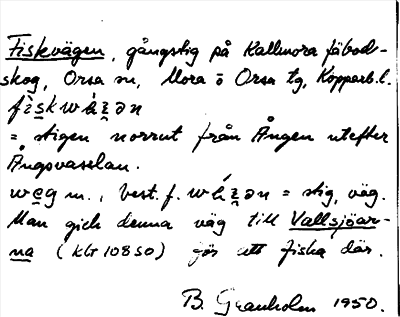 Fiskvägen, gångstig på Kallmora fäbod-
skog, Orsa sn, Mora o Orsa tg, Kopparb.l.
= stigen norrut från Ången utefter
Ångsvasslan.
m., best. f. = stig, väg.
Man gick denna väg till Vallsjöar-
na (kbl 10850) för att fiska där.
B. Granholm 1950.